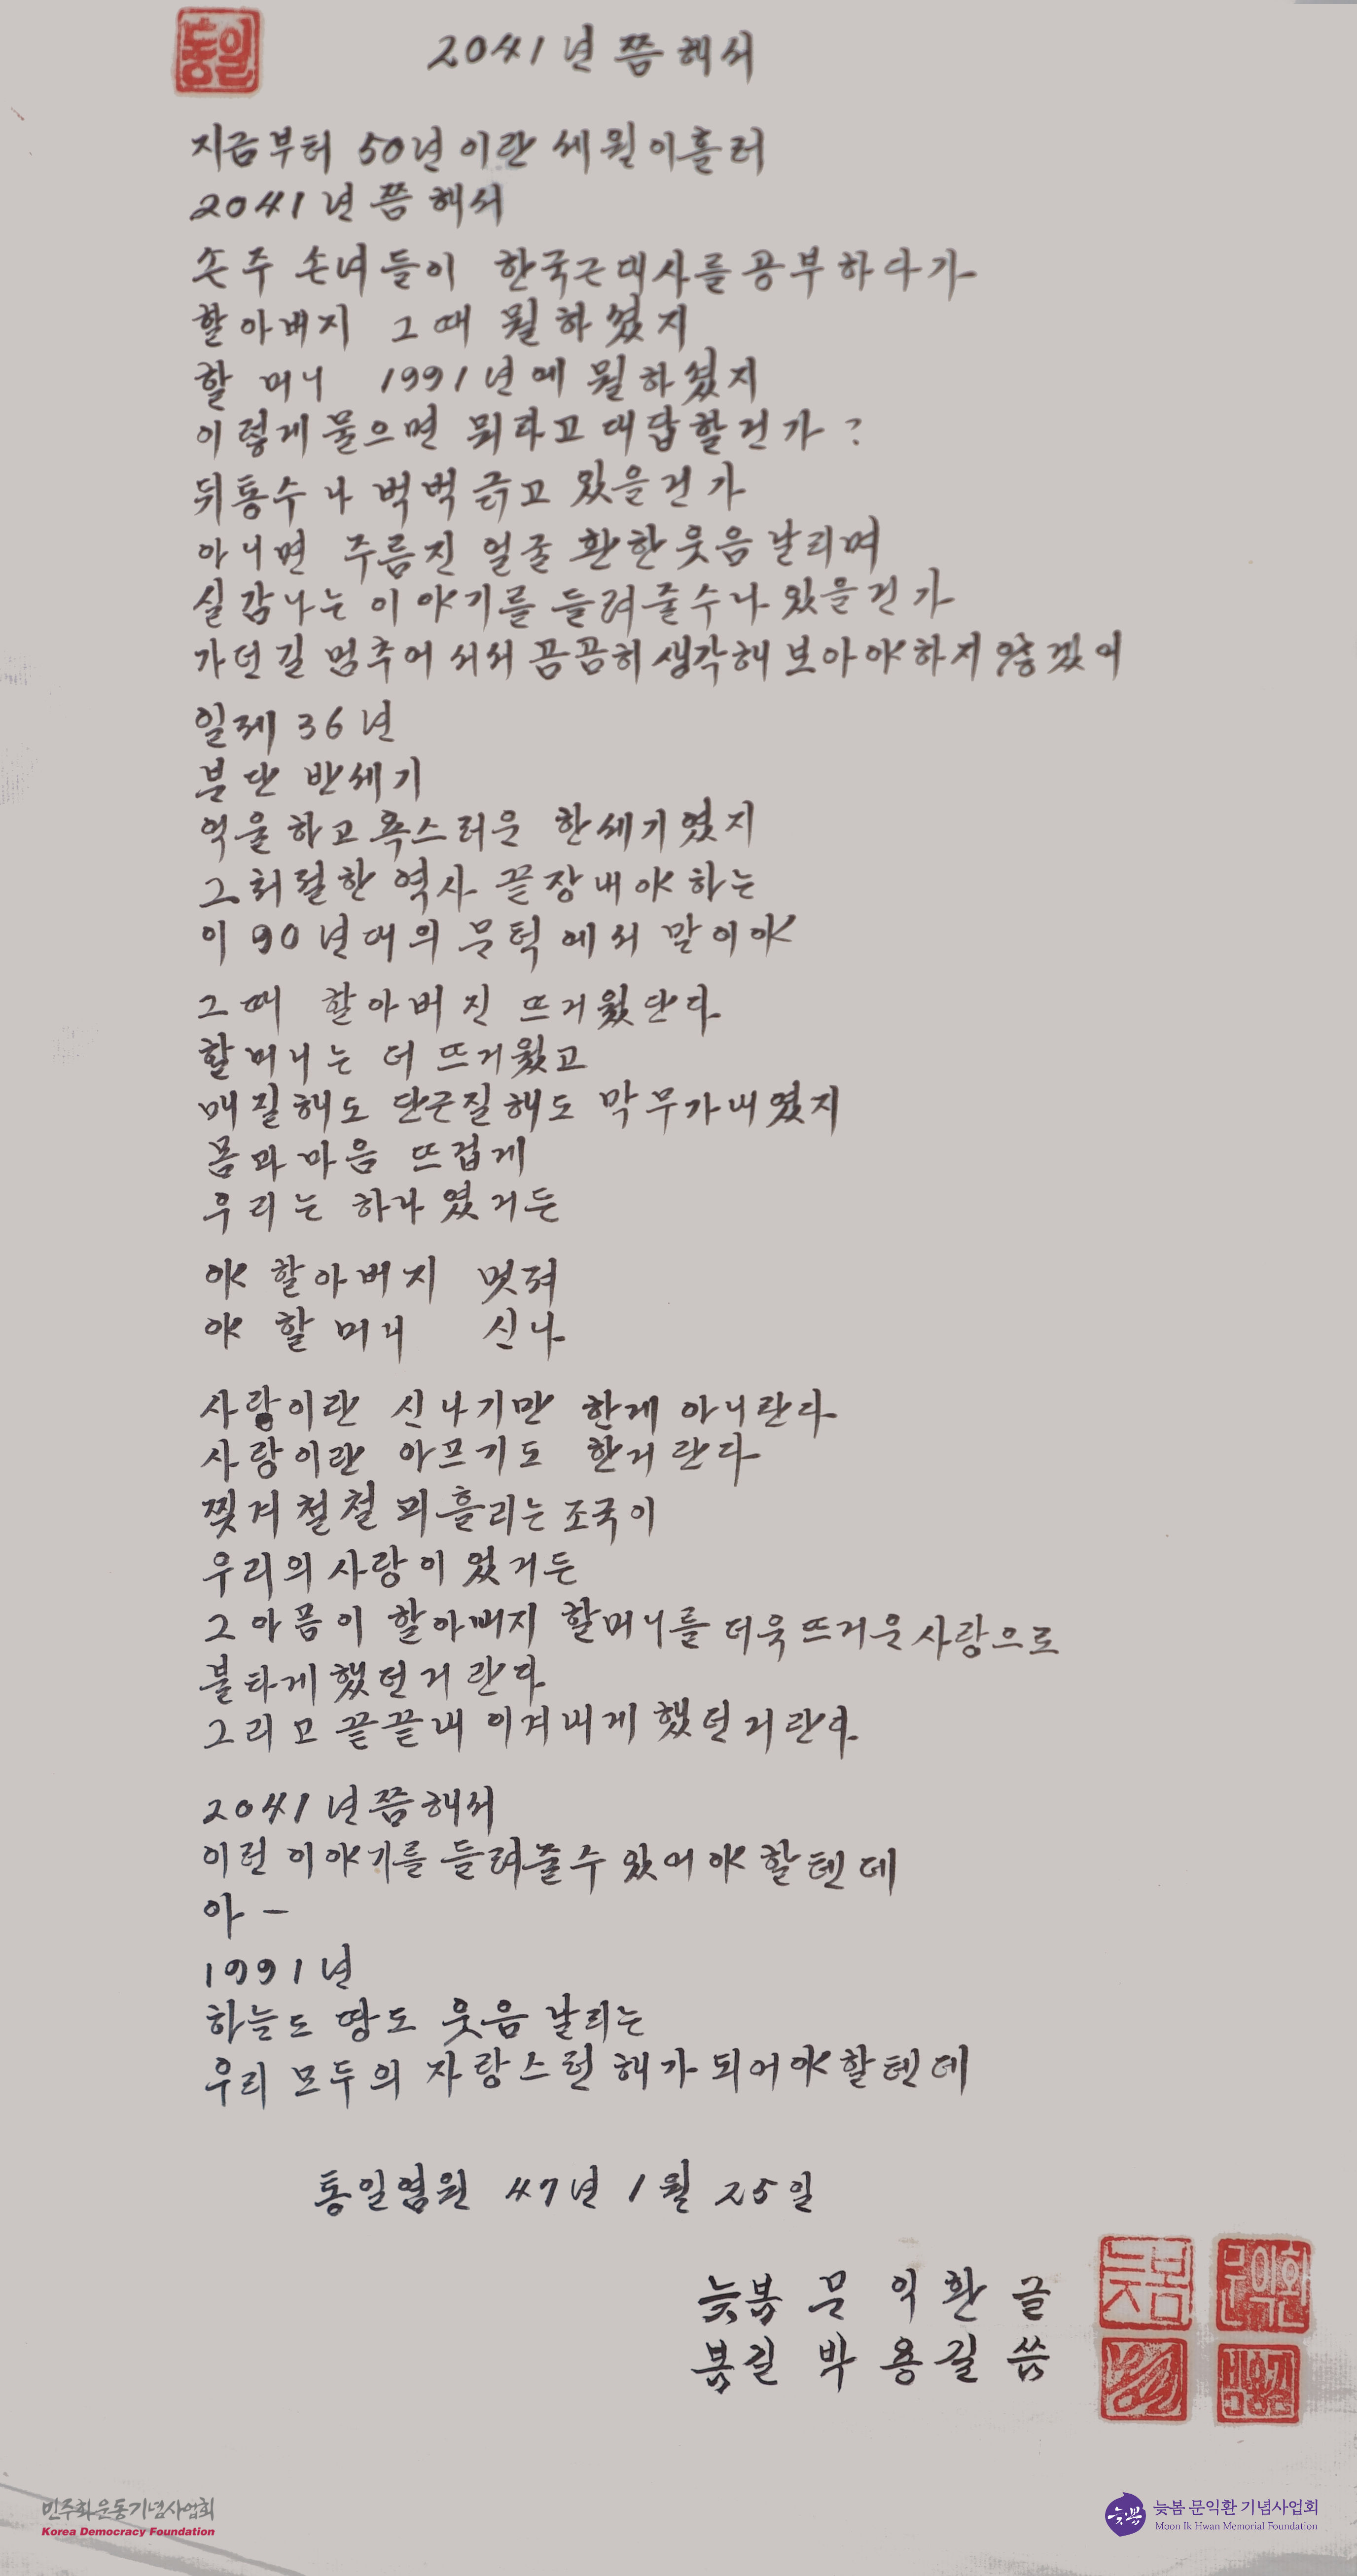 통일
2041년쯤 해서
지금부터 50년이란 세월이 흘러
2041년쯤 해서
손주 손녀들이 한국근대사를 공부하다가
할아버지 그때 뭘하셨지
할머니 1991년에 뭘하셨지
이렇게 물으면 뭐라고 대답할건가?
뒤통수나 벅벅 긁고 있을건가
아니면 주름진 얼굴 환한 웃음 날리며
실감나는 이야기를 들려줄수나 있을건가
가던길 멈추어 서서 곰곰히 생각해 보아야 하지 않겠어
일제 36년
분단 반세기
억울하고 욕스러운 한세기였지
그 처절한 역사 끝장내야 하는
이 90년대의 문턱에서 말이야
그때 할아버진 뜨거웠단다
할머니는 더 뜨거웠고
매질해도 단근질해도 막무가내였지
몸과 마음 뜨겁게
우리는 하나였거든
야 할아버지 멋져
야 할머니 신나
사랑이란 신나기만 한게 아니란다
사랑이란 아프기도 한거란다
찢겨 철철 피흘리는 조국이
우리의 사랑이었거든
그 아픔이 할아버지 할머니를 더욱 뜨거운 사랑으로
불타게 했던거란다
그리고 끝끝내 이겨내게 했던거란다
2041년쯤 해서
이런 이야기를 들려줄수 있어야 할텐데
아 -
1991년
하늘도 땅도 웃음 날리는
우리 모두의 자랑스런 해가 되어야 할텐데
통일염원 47년 1월 25일
늦봄 문익환 글
봄길 박용길 씀
늦봄 문익환
봄길 박용길
민주화운동기념사업회
Korea Democracy Foundation
늦봄
늦봄 문익환 기념사업회
Moon Ik Hwan Memorial Foundation